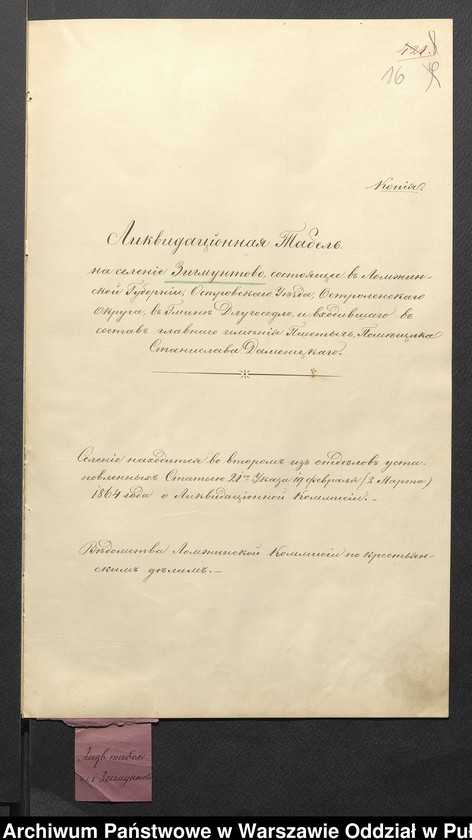 121.
16
Копія.
Ликвидаціонная Табель
на селеніе Зигмунтово, состоящее въ Ломжин-
ской Губерніи, Островскаго Уѣзда, Остроленскаго
Округа, въ Гминѣ Длугоседло, и входившаго въ
составъ главнаго имѣнія Пшетычъ, Помѣщика
Станислава
Селеніе находится во второмъ изъ отдѣловъ уста-
новленныхъ Статьею 21ю Указа 19 Февраля /2 Марта/
1864 года о Ликвидаціонной Коммисіи.-
Вѣдомства Ломжинской Коммисіи по крестьян-
скимъ дѣламъ.-
Ликв табель
Зигмунтово
Archiwum Państwowe w Warszawie Oddział w Puł